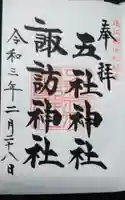 奉拝
五社神社
諏訪神社
令和三年二月二十八日